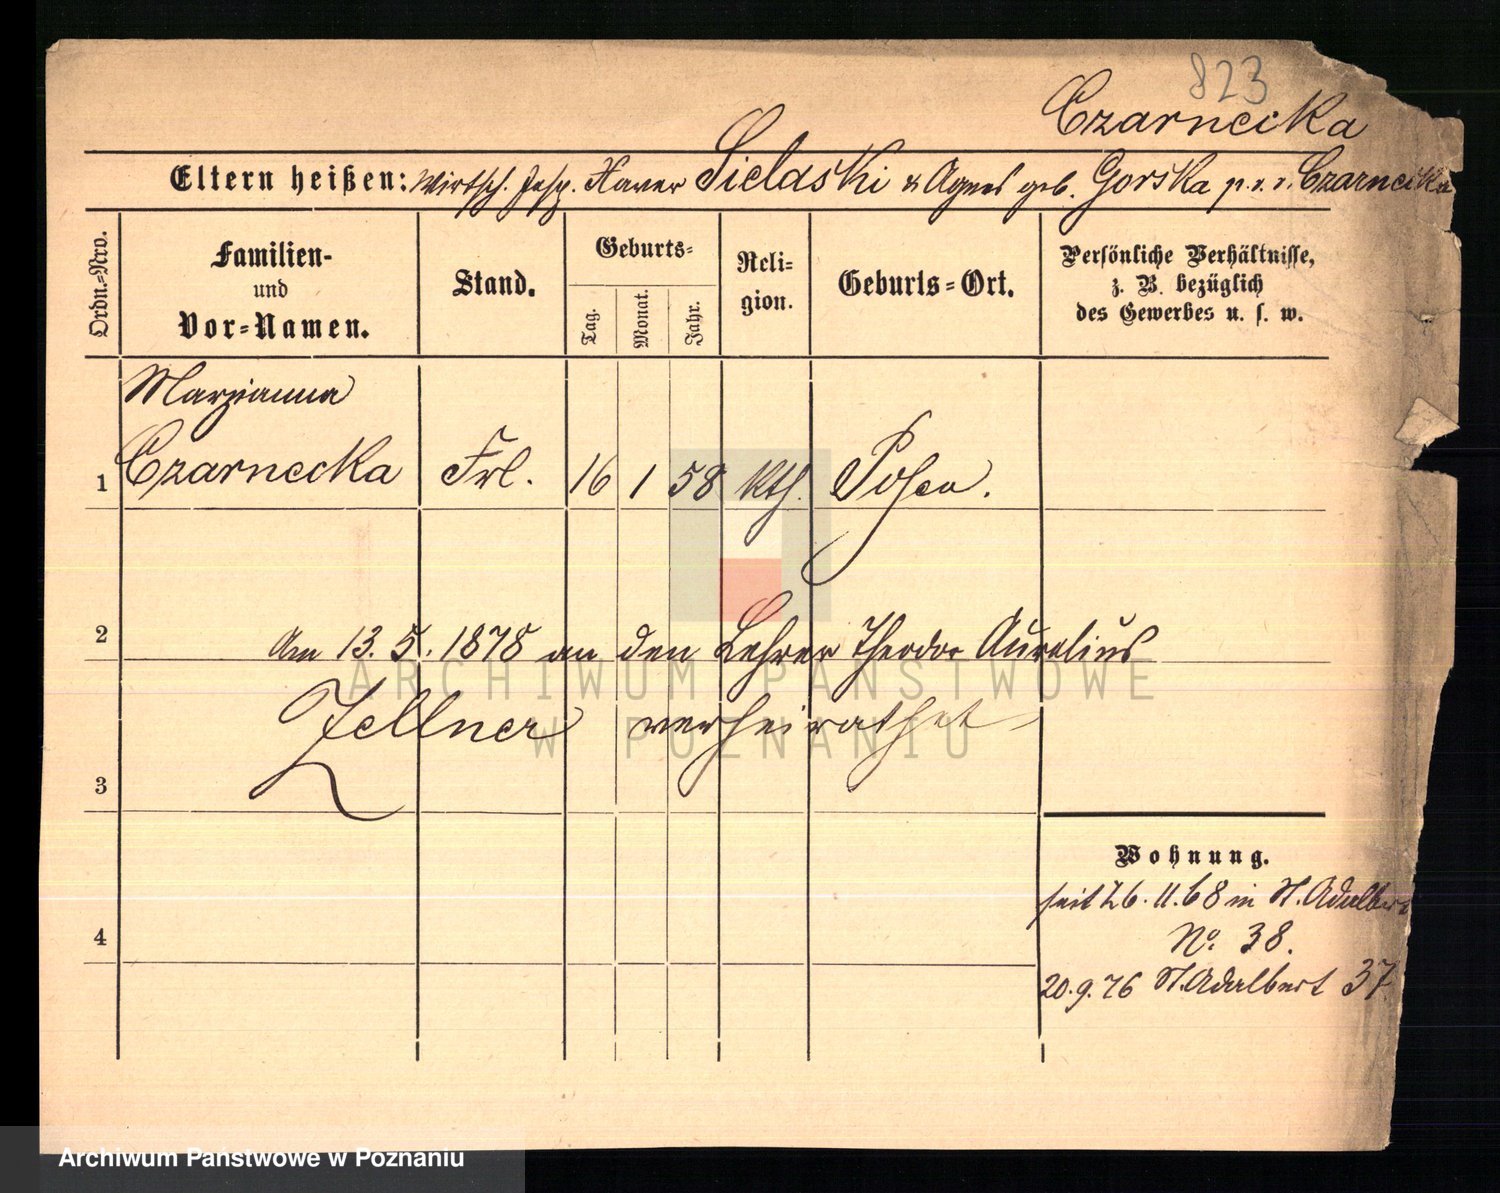 823
Czarnecka
Eltern heißen: Wirtsch. Insp. Xaver Sielaski & Agnes geb. Gorska p. v. v. Czarnecka
Ordn.-Nro.
Familien- und Vor-Namen.
Stand.
Geburts-
Tag.
Monat.
Jahr.
Reli-
gion.
Geburts-Ort.
Persönliche Verhältnisse,
z. B. bezüglich
des Gewerbes u. s. w.
Maryanna
1 Czarnecka Frl. 16 1 58 kth. Posen.
2 Am 13. 5. 1878 an den Lehrer Theodor Aurelius
Zellner verheirathet
3
Wohnung.
seit 26. 11. 68 in St. Adalbert
No. 38.
4
20. 9. 76 St. Adalbert 37
ARCHIWUM PAŃSTWOWE
W POZNANIU
Archiwum Państwowe w Poznaniu